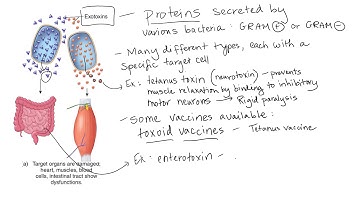 Exotoxins
- Proteins secreted by
various bacteria: GRAM (+) or GRAM (-)
- Many different types, each with a
specific target cell
- Ex: tetanus toxin (neurotoxin) - prevents
muscle relaxation by binding to inhibitory
motor neurons → Rigid paralysis
- Some vaccines available:
toxoid vaccines - Tetanus vaccine
- Ex: enterotoxin -
a) Target organs are damaged;
heart, muscles, blood
cells, intestinal tract show
dysfunctions.